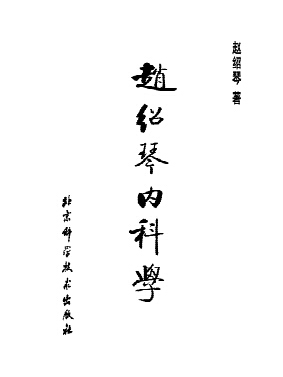 赵绍琴 著
趙绍琴内科學
北京科学技术出版社